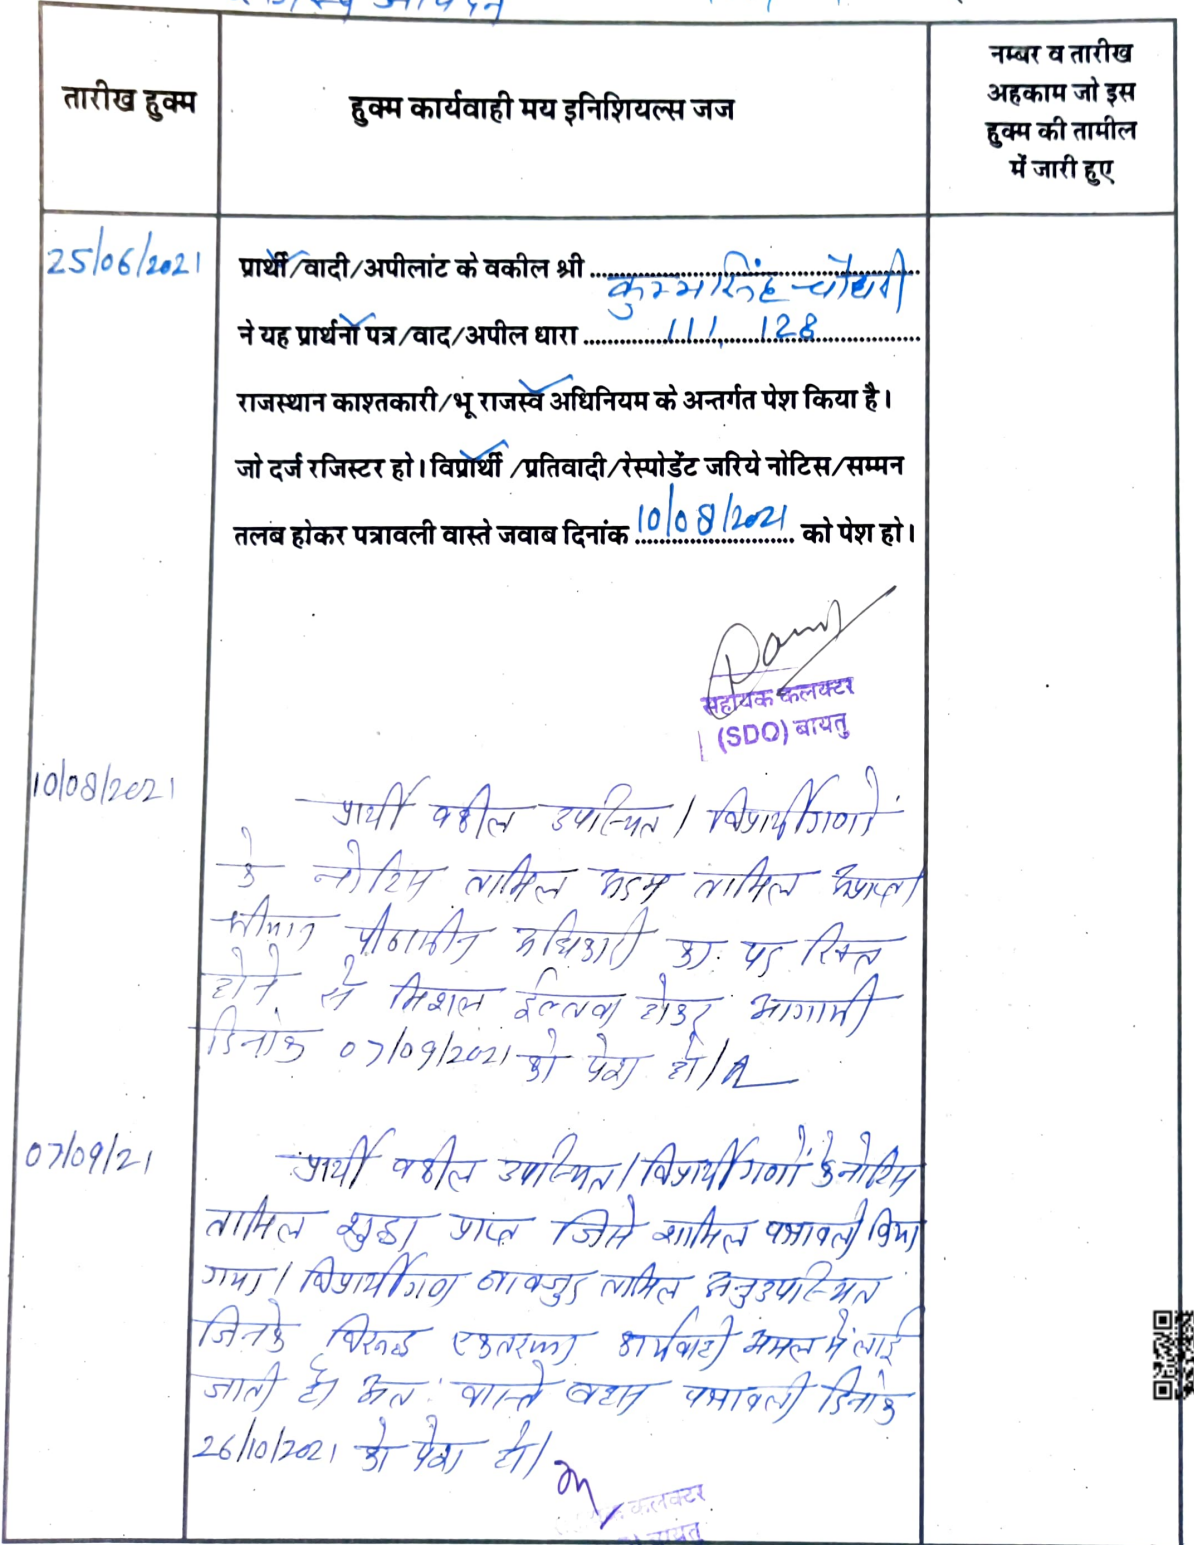 तारीख हुक्म
हुक्म कार्यवाही मय इनिशियल्स जज
नम्बर व तारीख
अहकाम जो इस
हुक्म की तामील
में जारी हुए
25/06/2021
प्रार्थी/वादी/अपीलांट के वकील श्री कुम्भसिंह चौधरी
ने यह प्रार्थना पत्र/वाद/अपील धारा 111, 128
राजस्थान काश्तकारी/भू राजस्व अधिनियम के अन्तर्गत पेश किया है।
जो दर्ज रजिस्टर हो। विप्रार्थी /प्रतिवादी/रेस्पोडेंट जरिये नोटिस/सम्मन
तलब होकर पत्रावली वास्ते जवाब दिनांक 10/08/2021 को पेश हो।
सहायक कलक्टर
(SDO) बायतु
10/08/2021
प्रार्थी वकील उपस्थित। विप्रार्थीगणों
के नोटिस तामिल अदम तामिल अप्राप्त।
श्रीमान पीठासीन अधिकारी का पद रिक्त
होने से मिशल ईल्तवा होकर आगामी
दिनांक 07/09/2021 को पेश हो।
07/09/21
प्रार्थी वकील उपस्थित। विप्रार्थीगणों के नोटिस
तामिल शुदा प्राप्त जिसे शामिल पत्रावली किया
गया। विप्रार्थीगण बावजुद तामिल अनुउपस्थित
जिनके विरूद्ध एकतरफा कार्यवाही अमल में लाई
जाती है। अत: वास्ते बहस पत्रावली दिनांक
26/10/2021 को पेश हो।
कलक्टर
बायतु